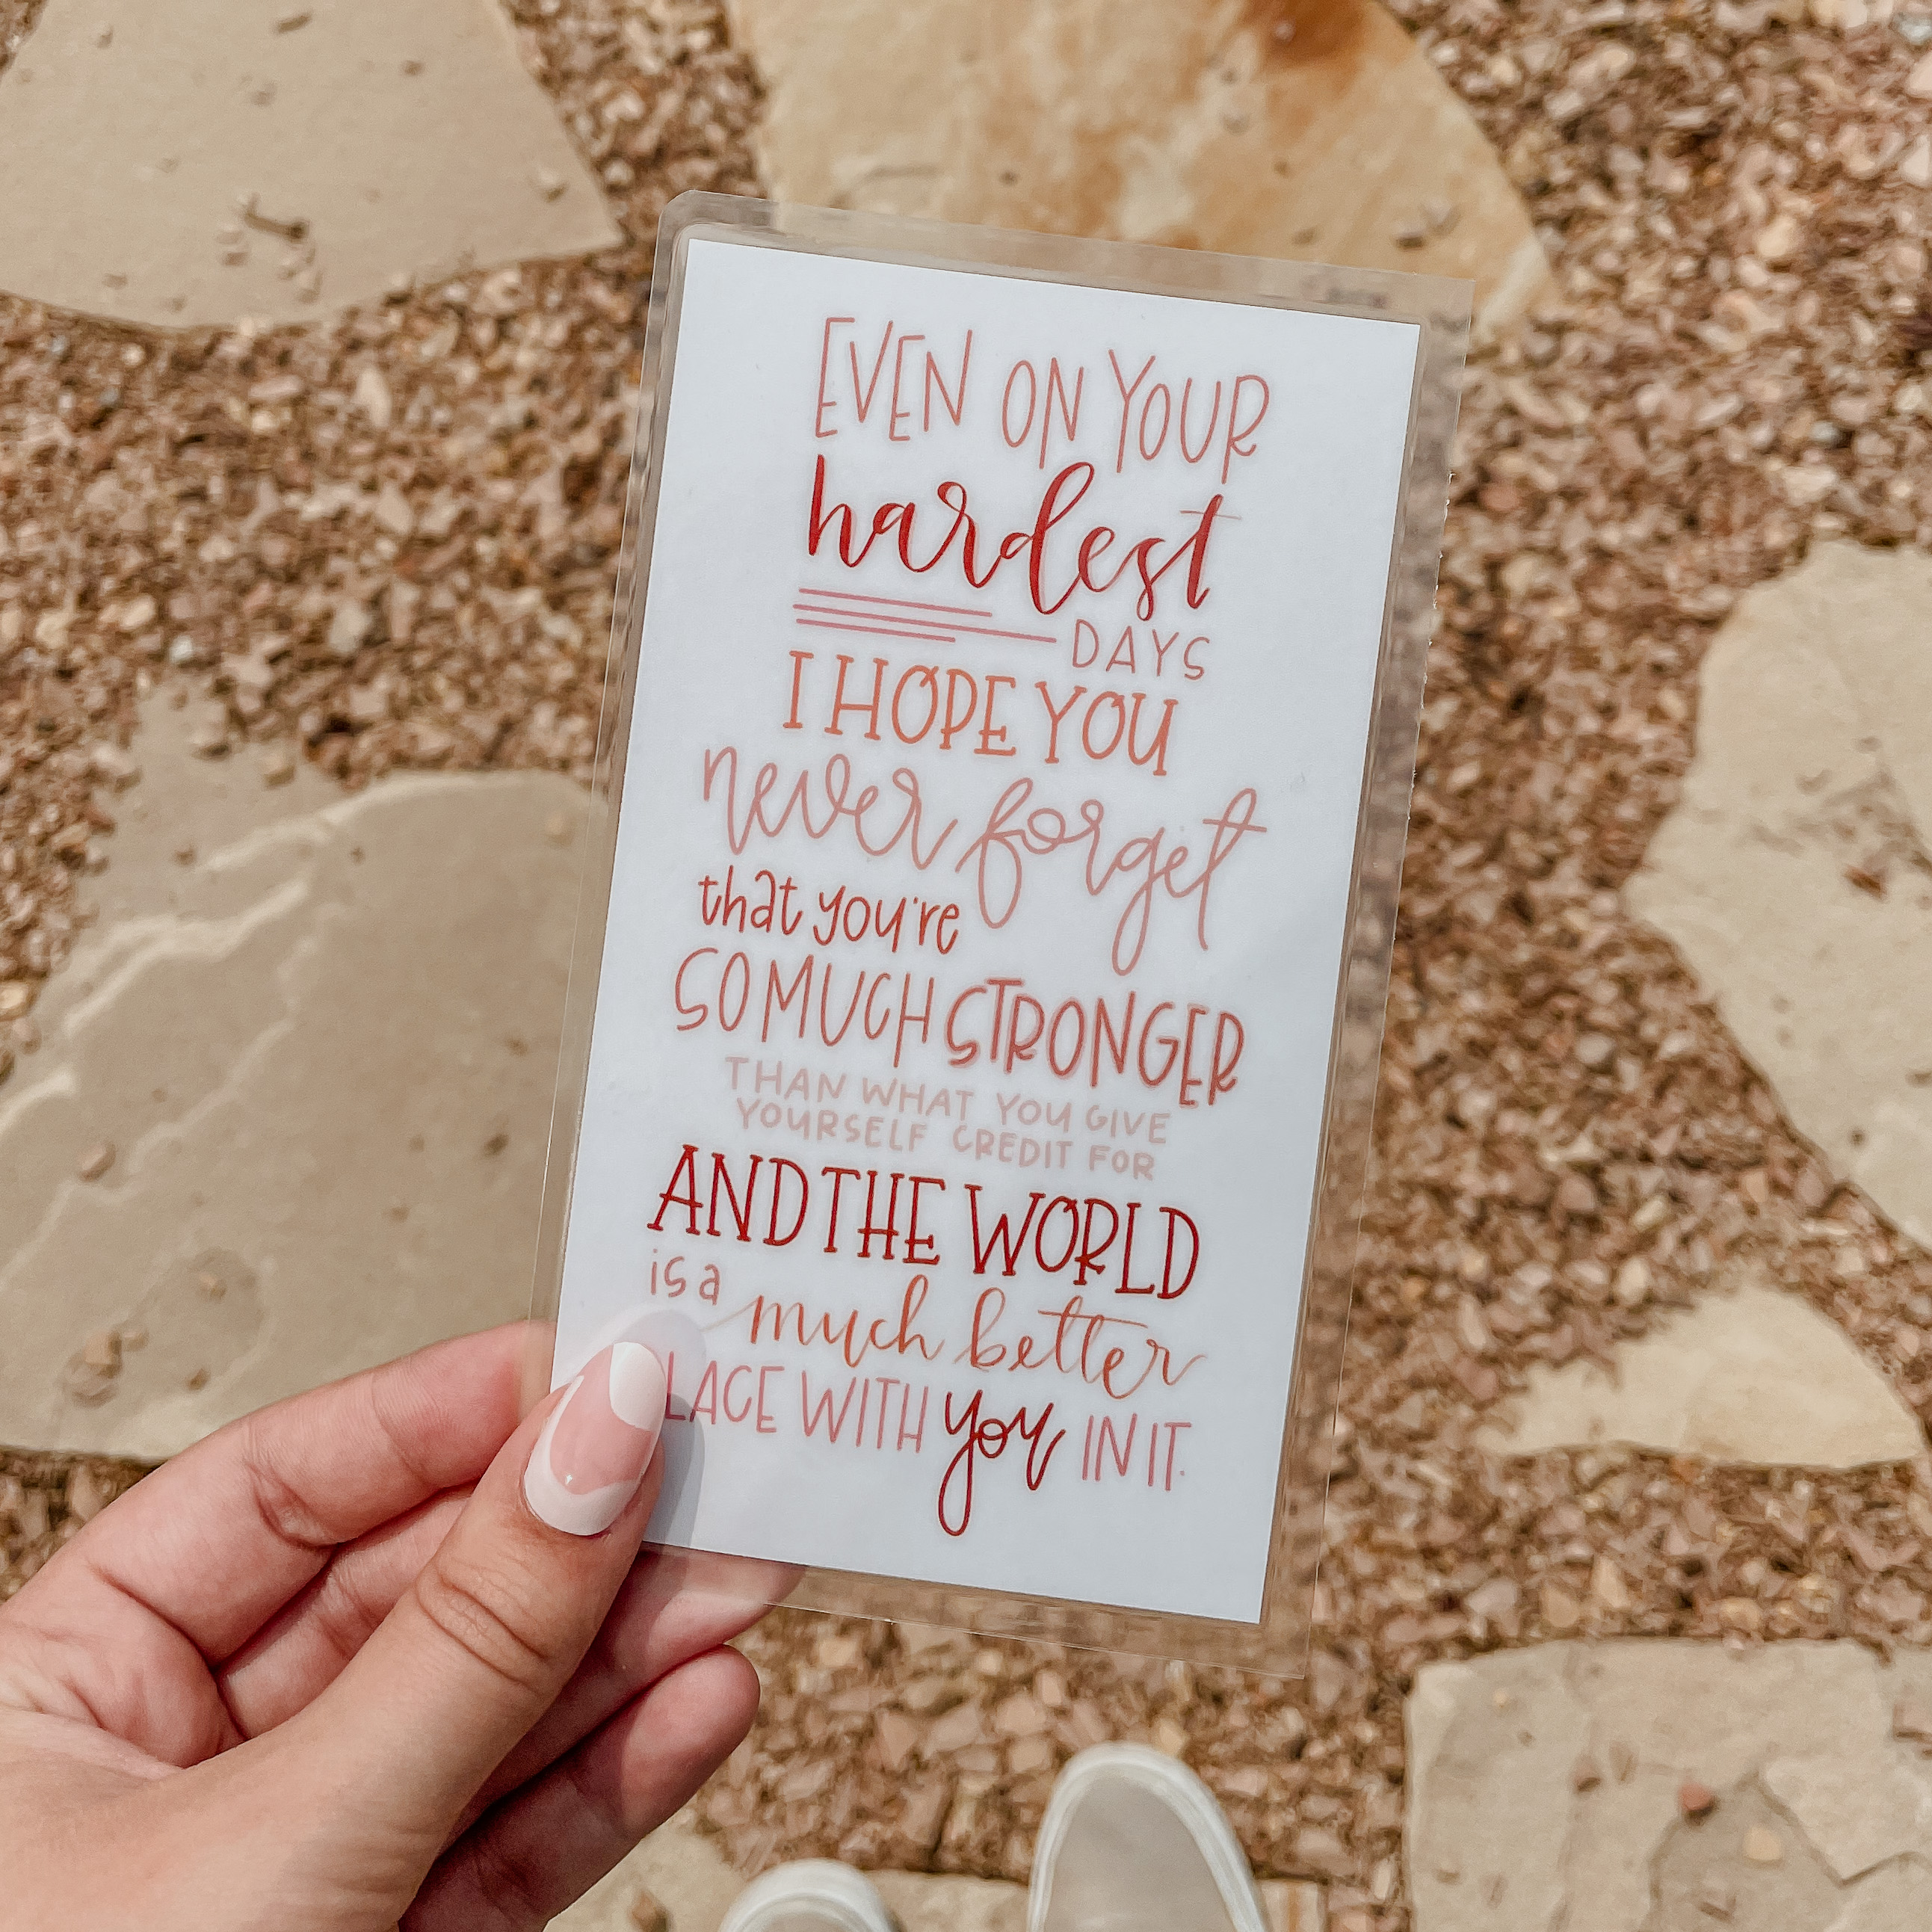 EVEN ON YOUR
hardest
DAYS
I HOPE YOU
never forget
that you're
SO MUCH STRONGER
THAN WHAT YOU GIVE
YOURSELF CREDIT FOR
AND THE WORLD
is a much better
LACE WITH you IN IT.